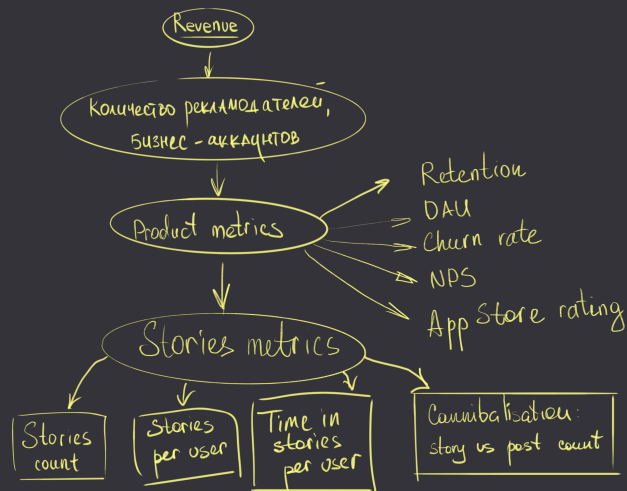 Revenue
Количество рекламодателей,
бизнес-аккаунтов
Product metrics
Retention
DAU
Churn rate
NPS
App Store rating
Stories metrics
Stories
count
Stories
per user
Time in
stories
per user
Cannibalisation:
story vs post count